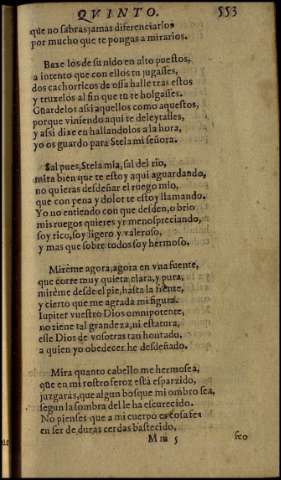 QVINTO. 553
que no sabras jamas diferenciarlos
por mucho que te pongas a mirarlos.
Baxe los de su nido en alto puestos,
a intento que con ellos tu jugasses,
dos cachorricos de ossa halle tras estos
y truxelos al fin que tu te holgasses.
Guardelos assi aquellos como aquestos,
porque viniendo aqui te deleytasses,
y assi dixe en hallandolos a la hora,
yo os guardo para Stela mi señora.
Sal pues, Stela mia, sal del rio,
mira bien que te estoy aqui aguardando,
no quieras desdeñar el ruego mio,
que con pena y dolor te estoy llamando.
Yo no entiendo con que desden, o brio
mis ruegos quieres yr menospreciando,
soy rico, soy ligero y valeroso,
y mas que sobre todos soy hermoso.
Mirème agora, agora en vna fuente,
que corre muy quieta, clara, y pura,
mirème desde el pie, hasta la frente,
y cierto que me agrada mi figura.
Iupiter vuestro Dios omnipotente,
no tiene tal grandeza, ni estatura,
esse Dios de vosotras tan honrado,
a quien yo obedecer he desdeñado.
Mira quanto cabello me hermosea,
que en mi rostro feroz està esparzido,
juzgaràs, que algun bosque mi ombro sea,
segun la sombra del le ha escurecido.
No pienses que a mi cuerpo es cosa fea
en ser de duras cerdas bastecido,
5 feo